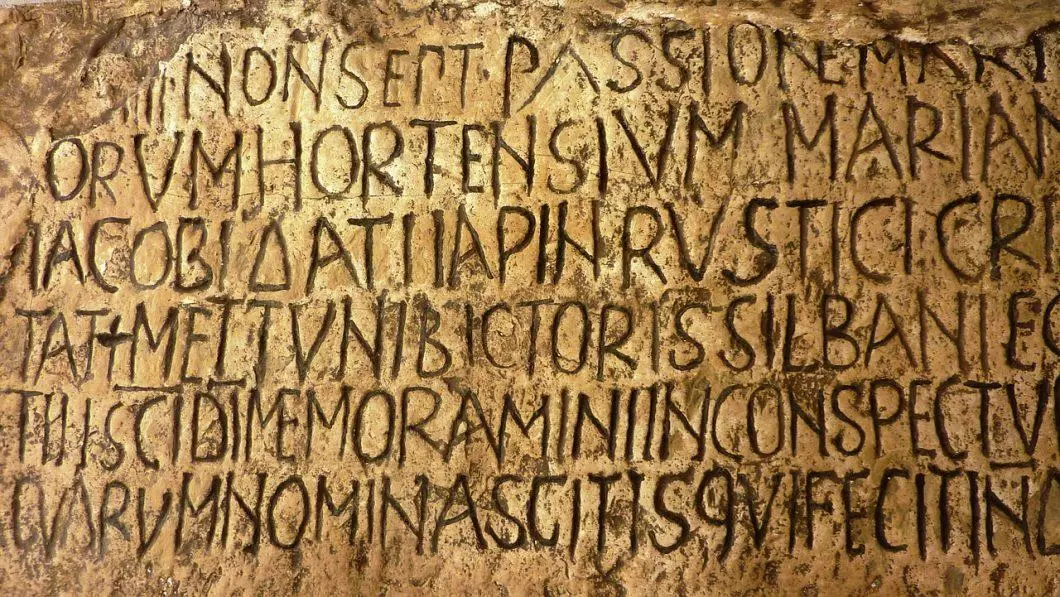 IIII NON SEPT· PASSIONE MART
ORVM HORTENSIVM MARIAN
IACOBI DATI IAPIN RVSTICI CRI
TAT+ METTVNI BICTORIS SILBANI EG
TII SCI DI MEMORAMINI IN CONSPECTV
QVARVM NOMINA SCIT IS QVI FECIT IN